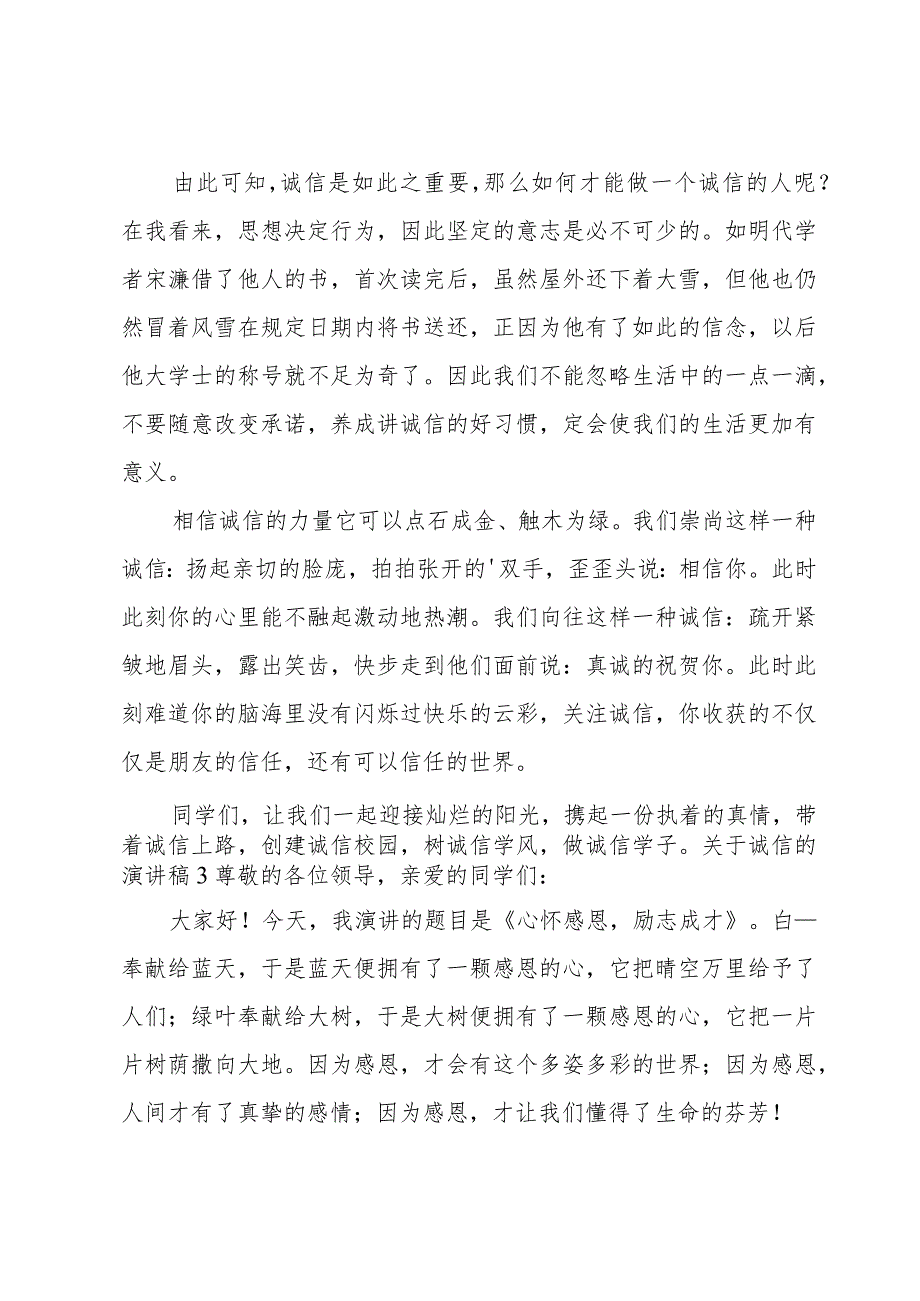 由此可知,诚信是如此之重要,那么如何才能做一个诚信的人呢?
在我看来，思想决定行为，因此坚定的意志是必不可少的。如明代学
者宋濂借了他人的书，首次读完后，虽然屋外还下着大雪，但他也仍
然冒着风雪在规定日期内将书送还，正因为他有了如此的信念，以后
他大学士的称号就不足为奇了。因此我们不能忽略生活中的一点一滴，
不要随意改变承诺，养成讲诚信的好习惯，定会使我们的生活更加有
意义。
相信诚信的力量它可以点石成金、触木为绿。我们崇尚这样一种
诚信：扬起亲切的脸庞，拍拍张开的'双手，歪歪头说：相信你。此时
此刻你的心里能不融起激动地热潮。我们向往这样一种诚信：疏开紧
皱地眉头，露出笑齿，快步走到他们面前说：真诚的祝贺你。此时此
刻难道你的脑海里没有闪烁过快乐的云彩，关注诚信，你收获的不仅
仅是朋友的信任，还有可以信任的世界。
同学们，让我们一起迎接灿烂的阳光，携起一份执着的真情，带
着诚信上路，创建诚信校园，树诚信学风，做诚信学子。关于诚信的
演讲稿3尊敬的各位领导，亲爱的同学们：
大家好！今天，我演讲的题目是《心怀感恩，励志成才》。白—
奉献给蓝天，于是蓝天便拥有了一颗感恩的心，它把晴空万里给予了
人们；绿叶奉献给大树，于是大树便拥有了一颗感恩的心，它把一片
片树荫撒向大地。因为感恩，才会有这个多姿多彩的世界；因为感恩，
人间才有了真挚的感情；因为感恩，才让我们懂得了生命的芬芳！